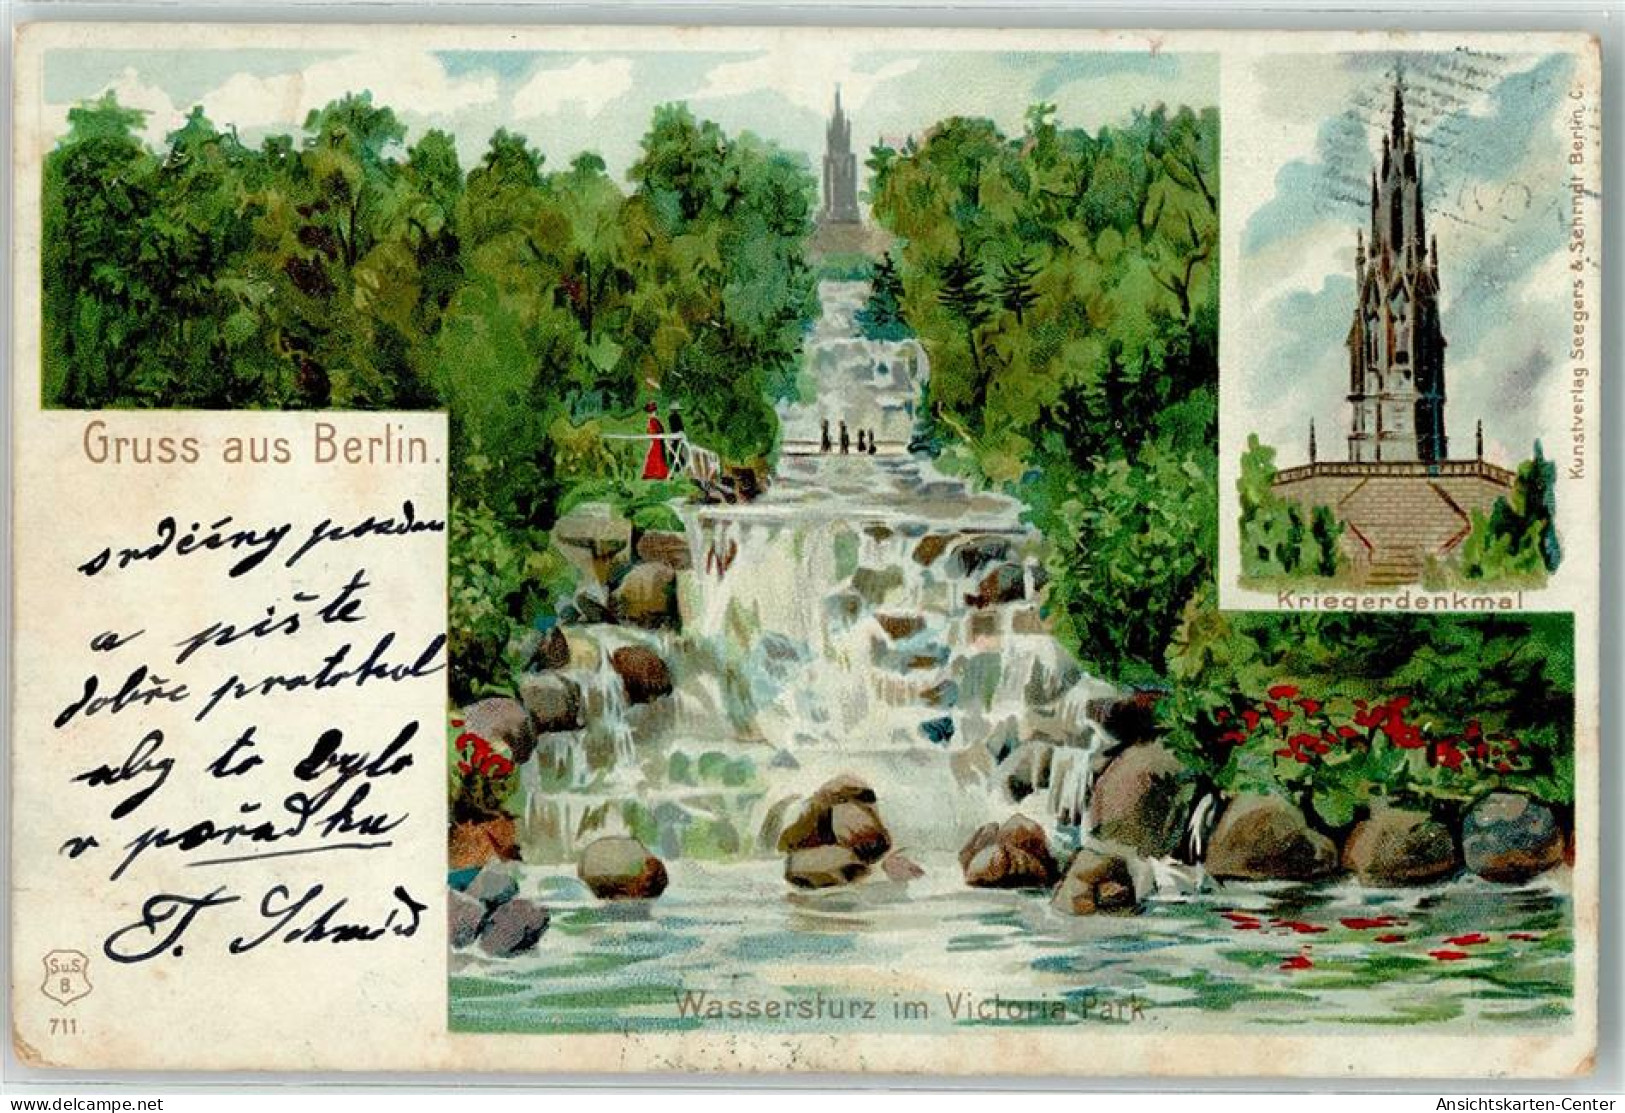 Gruss aus Berlin.
srdéčný pozdrav
a pište
dobře protokol
aby to bylo
v pořádku
F. Schmid
S.u.S.
B.
711
Wassersturz im Victoria-Park.
Kriegerdenkmal
Kunstverlag Seegers & Sehrndt Berlin, C.
delcampe.net
the_postcard_store
Ansichtskarten-Center